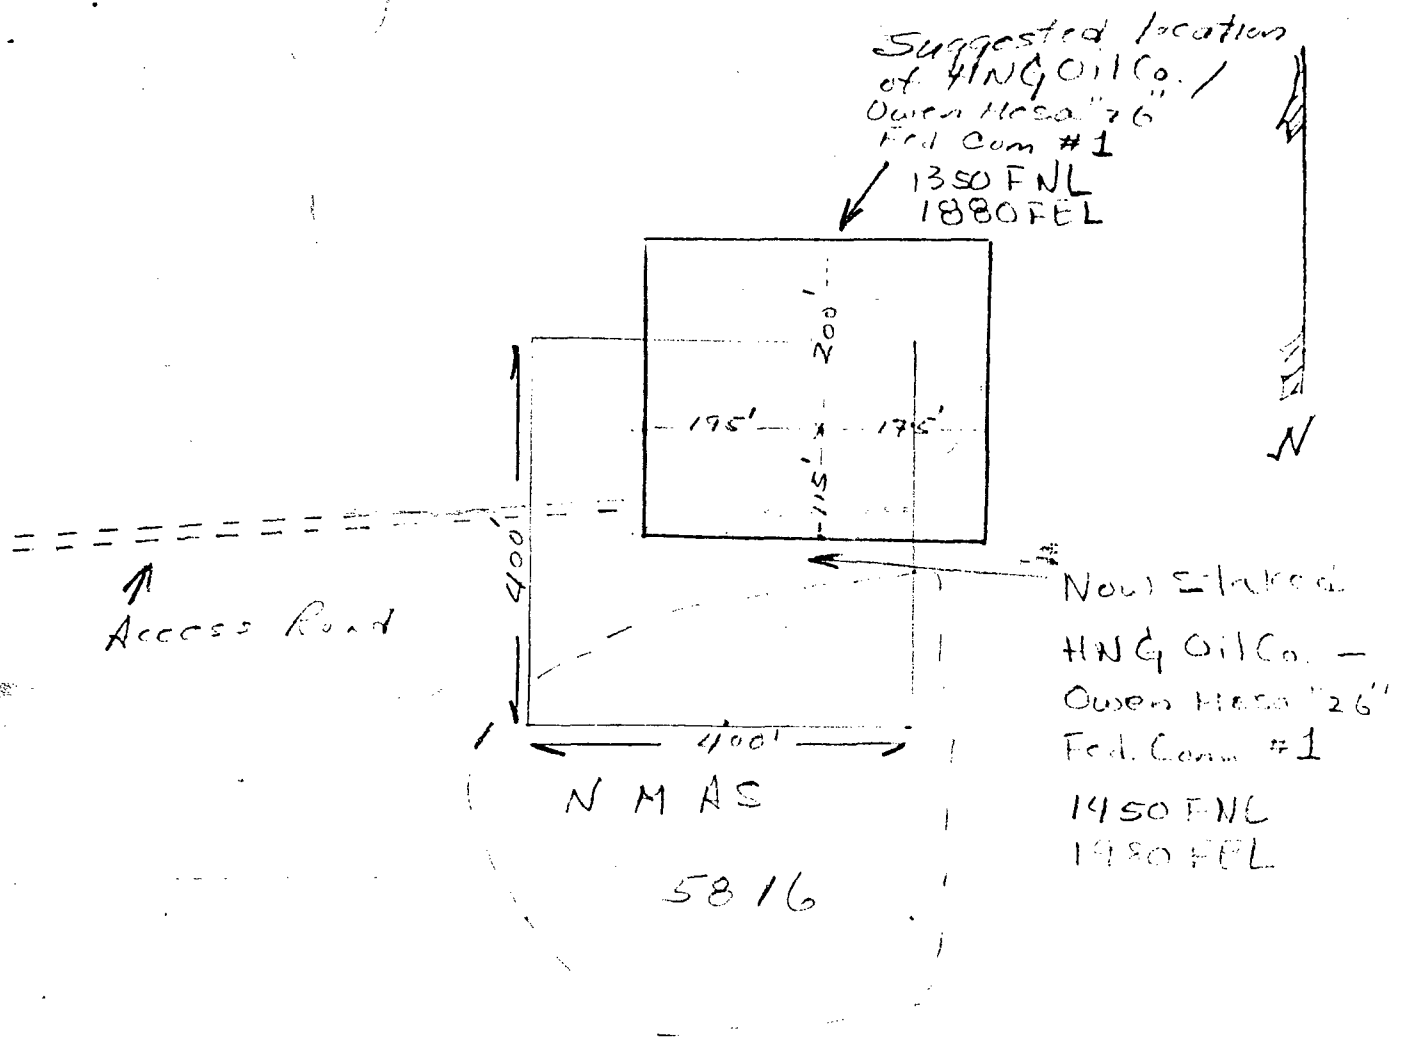 Suggested location
of HNG Oil Co.
Owen Mesa "26"
Fed Com #1
1350 FNL
1880 FEL
200'
195'
175'
115'
400'
Access Road
N
Now Staked
HNG Oil Co. -
Owen Mesa "26"
Fed. Com #1
1450 FNL
1980 FEL
400'
N M A S
5816